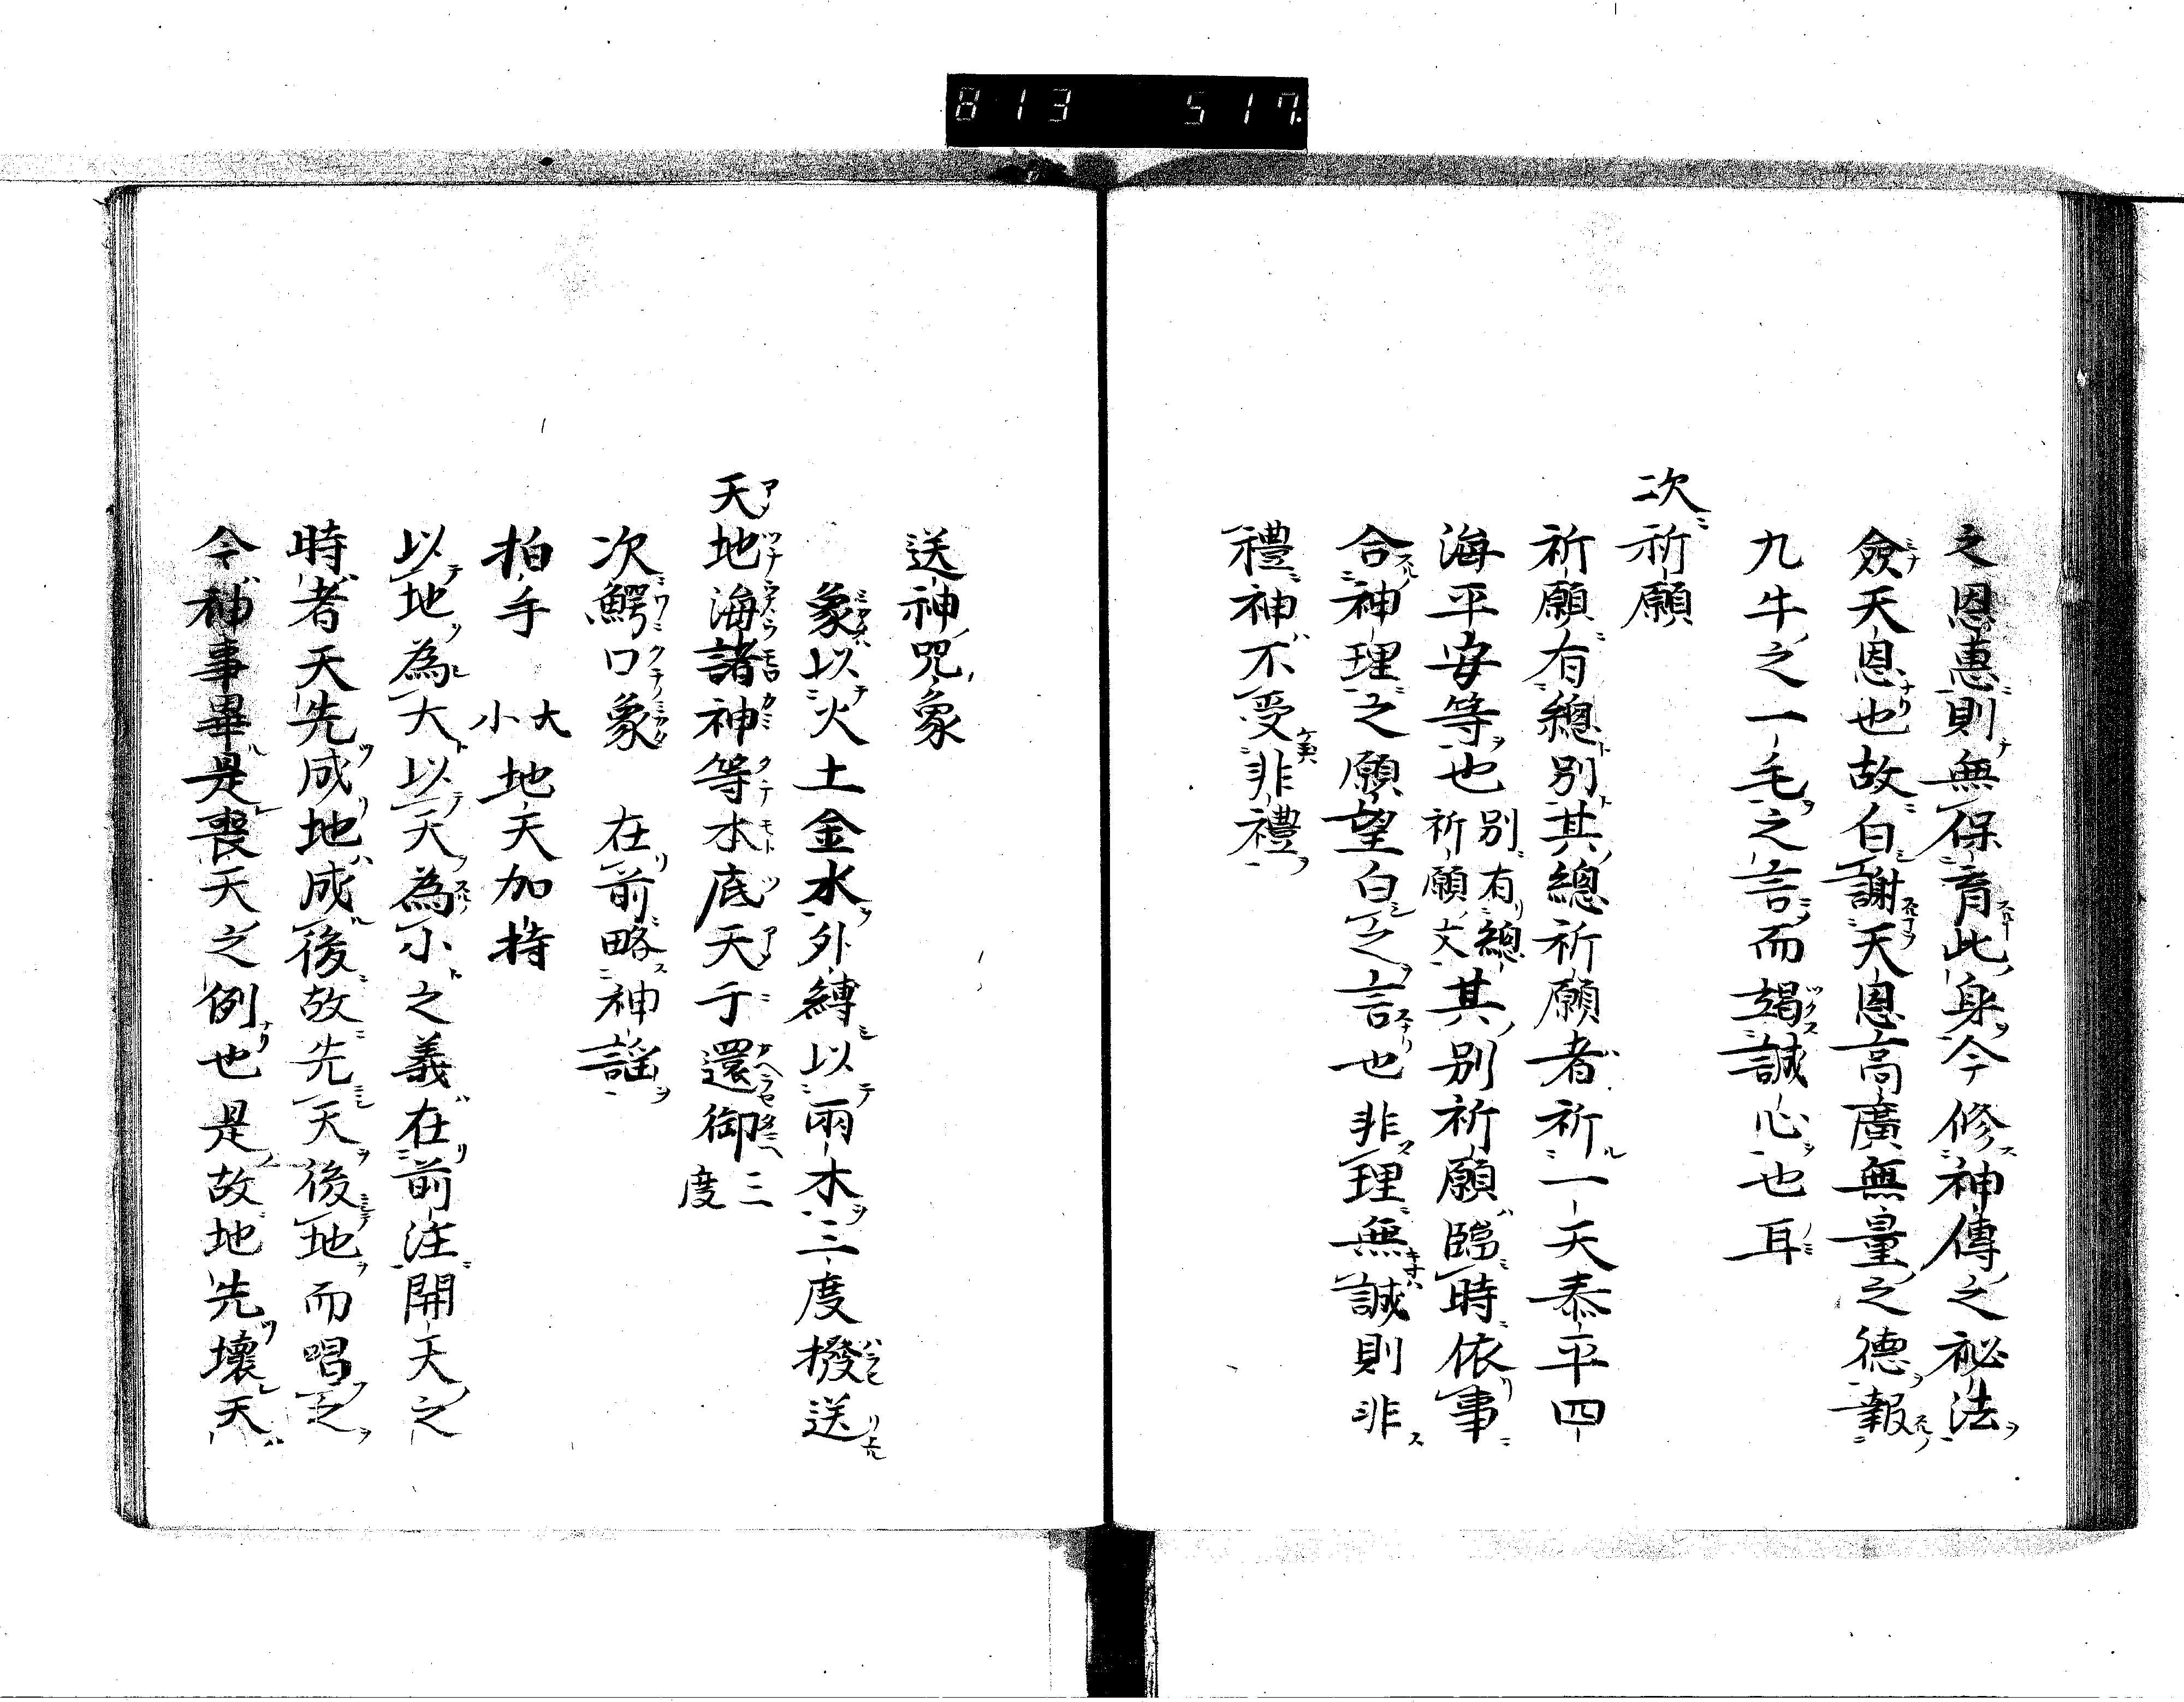 813 517
之恩惠則無保育此身今修神傳之祕法
僉天恩也故白謝天恩高廣無量之德報
九牛之一毛之言而竭誠心也耳
次祈願
祈願有總別其總祈願者祈一天泰平四
海平安等也別有總祈願文其別祈願臨時依事
合神理之願望白之言也非理無誠則非
禮神不受非禮
送神咒象
象以火土金水外縛以兩木三度撥送
天地海諸神等本底天于還御三度
次鰐口象 在前略神謡
拍手 大小地天加持
以地為大以天為小之義在前注開天之
時者天先成地成後故先天後地而唱之
今神事畢是喪天之例也是故地先壞天